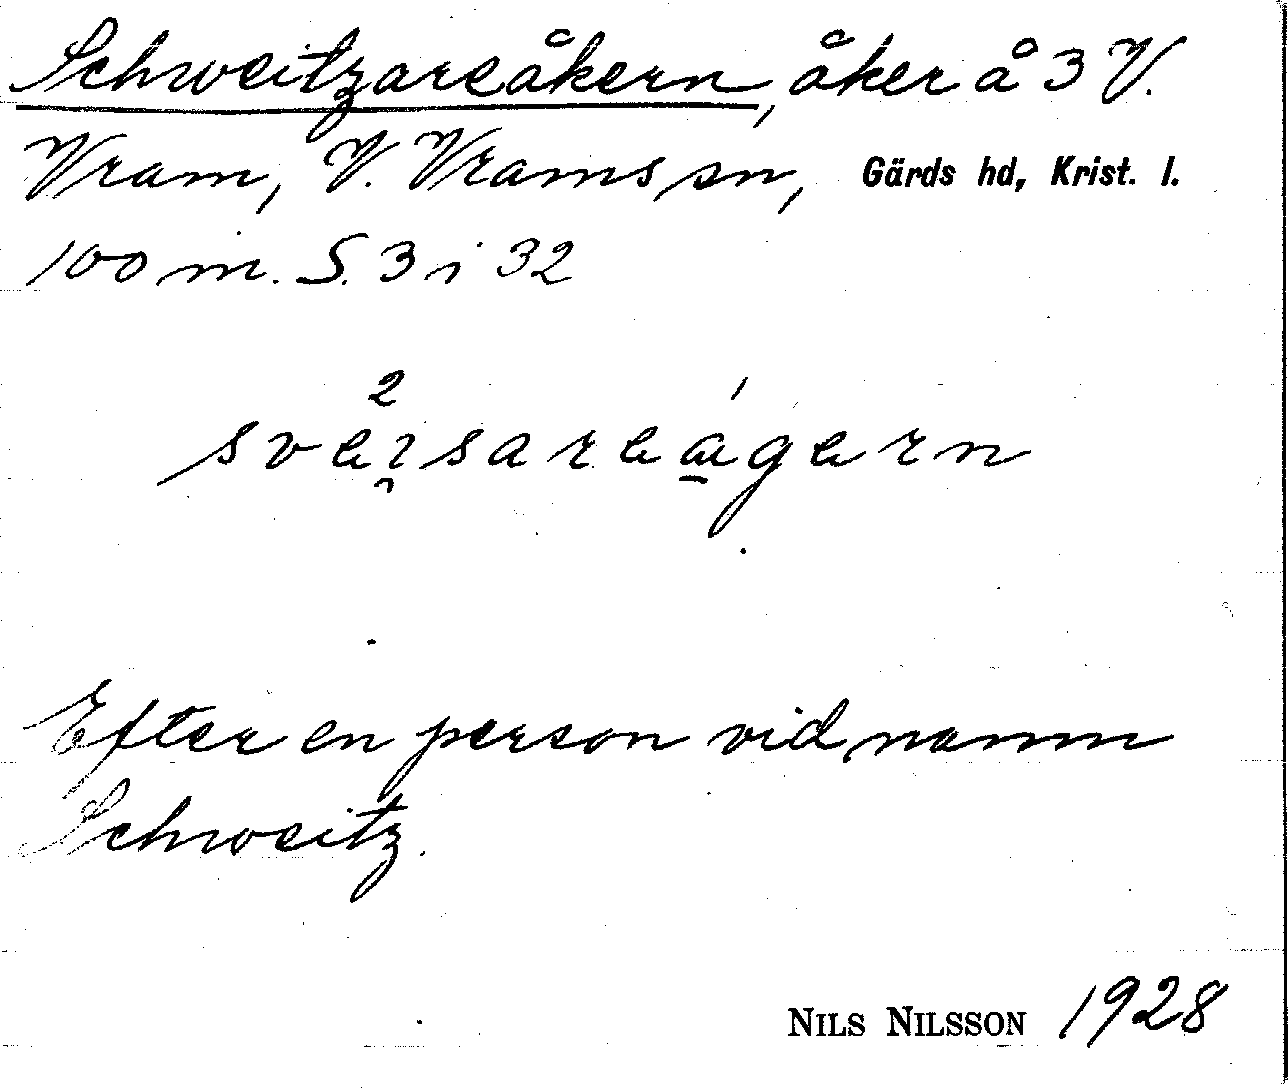 Schweitzareåkern, åker å 3 V.
Vram, V. Vrams sn, Gärds hd, Krist. l.
100 m. S. 3 i 32
sväi̯²sareǻ̱gärn
Efter en person vid namn
Schweitz.
NILS NILSSON 1928